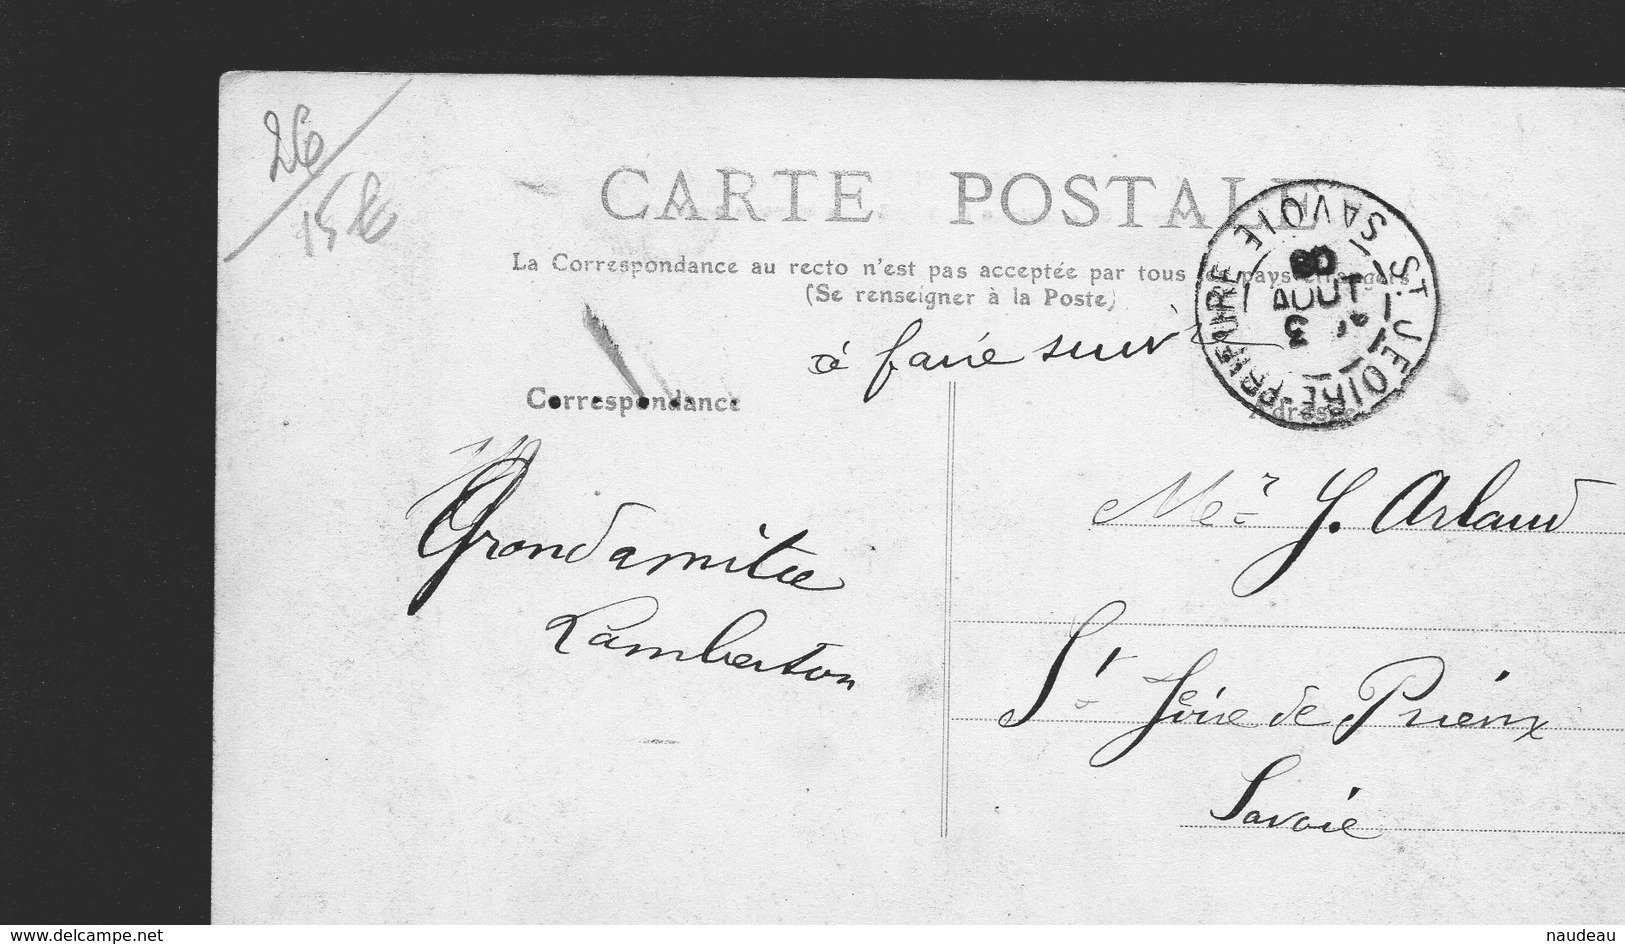 26
15€
CARTE POSTALE
La Correspondance au recto n'est pas acceptée par tous les pays étrangers
(Se renseigner à la Poste)
à faire suivre
ST JEOIRE-PRIEURÉ
SAVOIE
AOUT
3
Correspondance
Adresse
Grond amitié
Lamberton
Mr J. Arlaud
St Joire de Prieux
Savoie
www.delcampe.net
naudeau